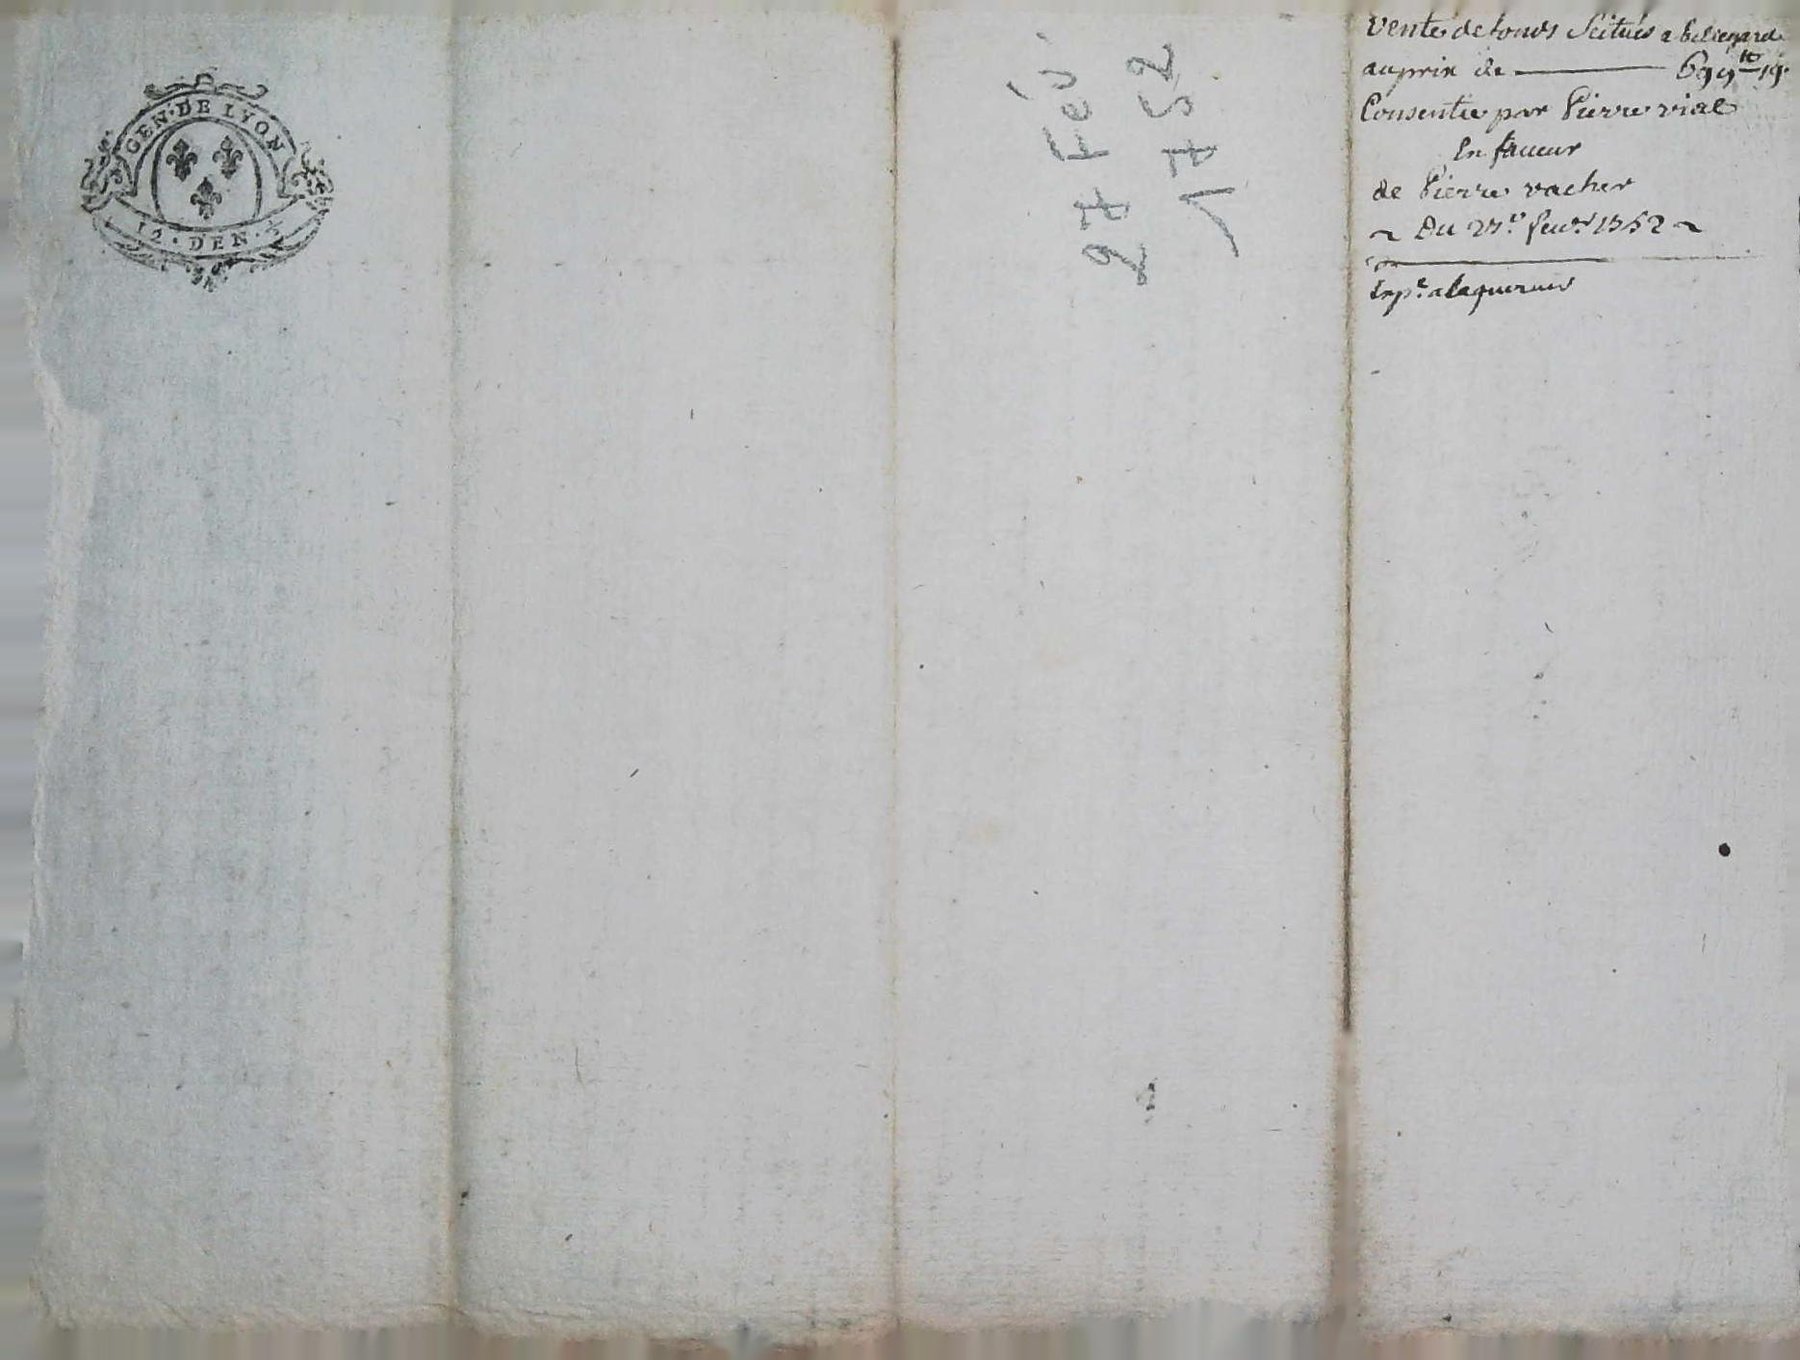 GEN·DE LYON
12·DEN·
27 Fév
1752
Vente de fonds Scitués a bellegarde
au prix de — 699ᵗᵗ 19ˢ
Consentie par Pierre vial
En faueur
de Pierre vacher
~ Du 27.e feur. 1752 ~
Exp.e